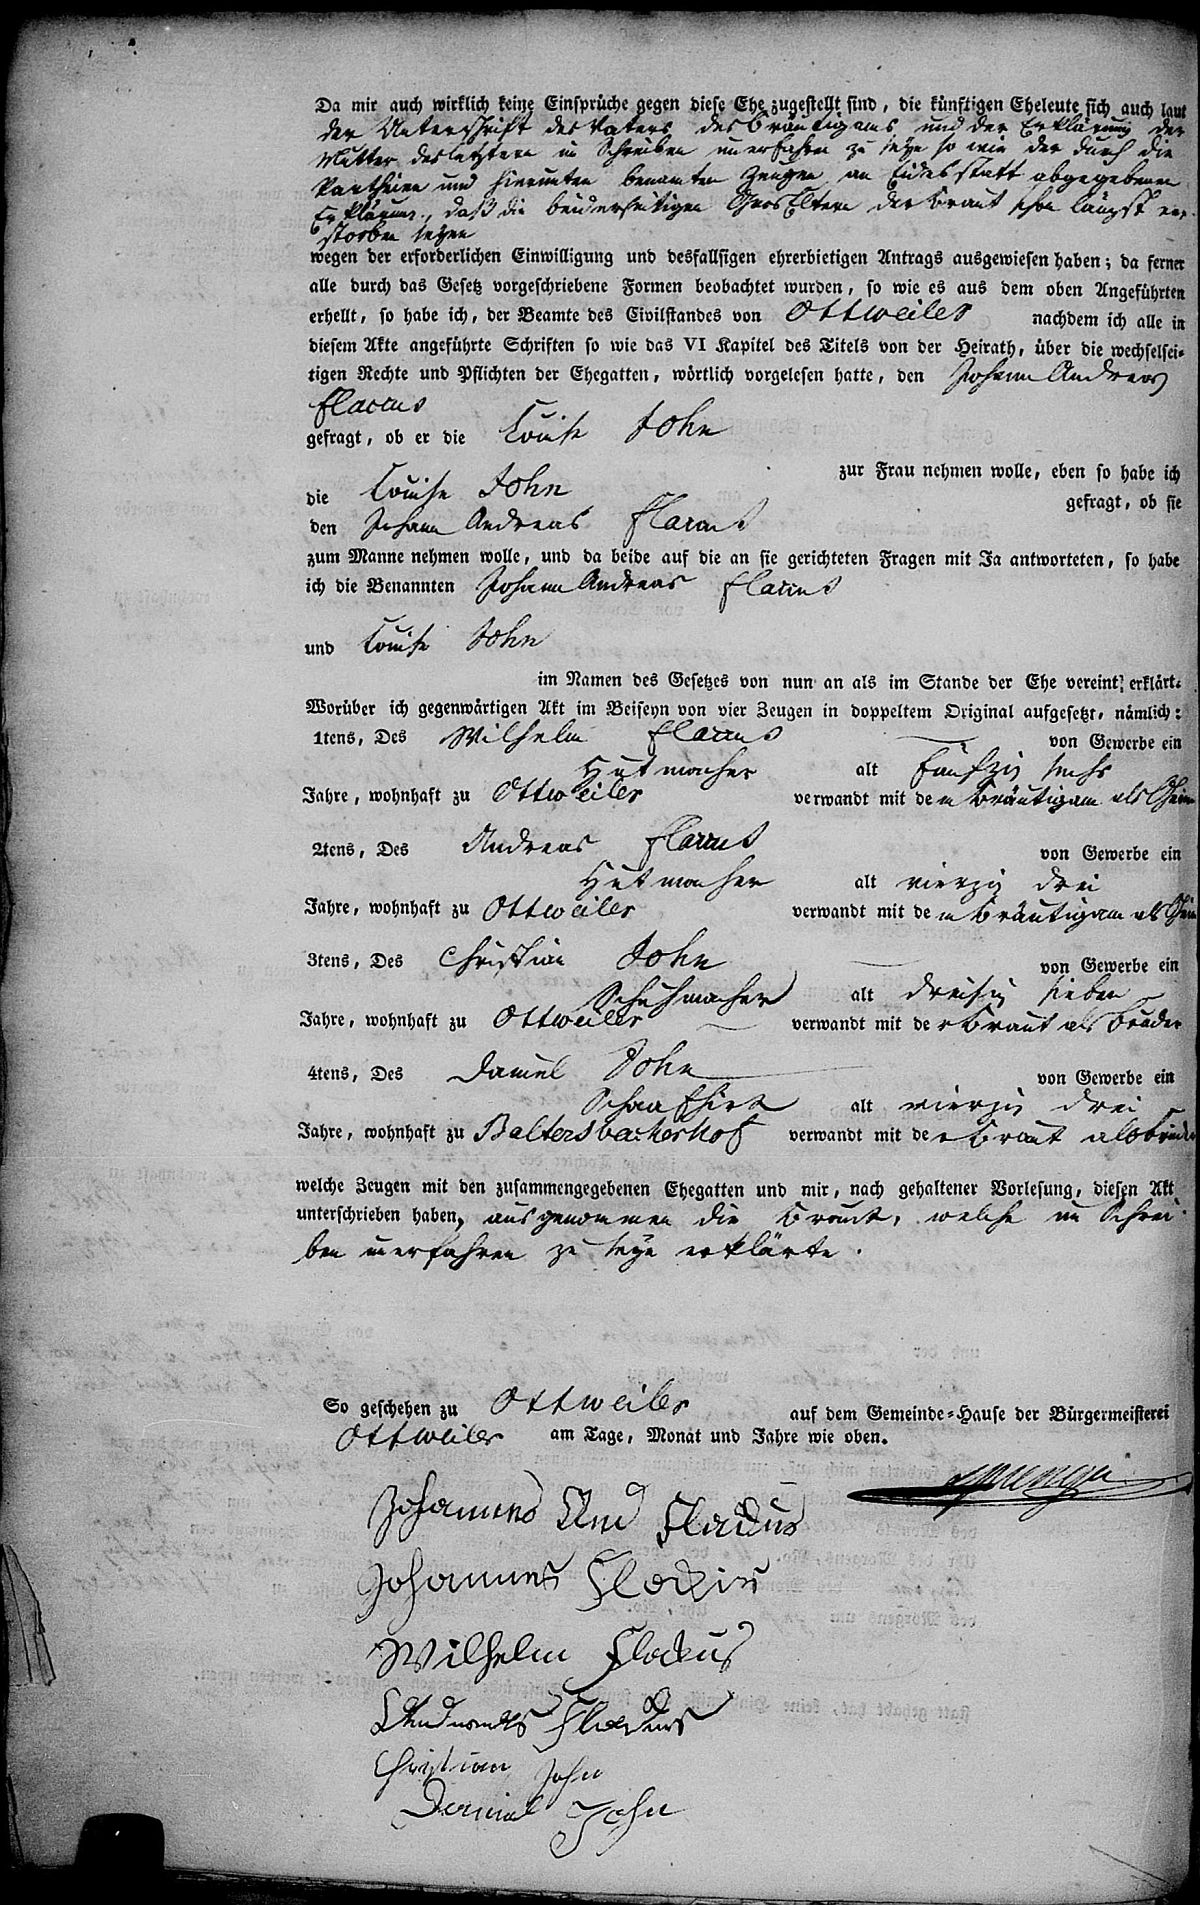 Da mir auch wirklich keine Einsprüche gegen diese Ehe zugestellt sind, die künftigen Eheleute sich auch laut
der Unterschrift des Vaters des Bräutigams und der Erklärung der
Mutter des letztern im Schreiben unerfahren zu seye so wie der durch die
Partheien und hierunten benannten Zeugen an Eidesstatt abgegebenen
Erklärung, daß die beiderseitigen GrosEltern der Braut schon längst ver-
storben seyen
wegen der erforderlichen Einwilligung und desfallsigen ehrerbietigen Antrags ausgewiesen haben; da ferner
alle durch das Gesetz vorgeschriebene Formen beobachtet wurden, so wie es aus dem oben Angeführten
erhellt, so habe ich, der Beamte des Civilstandes von Ottweiler nachdem ich alle in
diesem Akte angeführte Schriften so wie das VI Kapitel des Titels von der Heirath, über die wechselsei-
tigen Rechte und Pflichten der Ehegatten, wörtlich vorgelesen hatte, den Johann Andreas
Flaccus
gefragt, ob er die Louise John
zur Frau nehmen wolle, eben so habe ich
die Louise John
gefragt, ob sie
den Johann Andreas Flaccus
zum Manne nehmen wolle, und da beide auf die an sie gerichteten Fragen mit Ja antworteten, so habe
ich die Benannten Johann Andreas Flaccus
und Louise John
im Namen des Gesetzes von nun an als im Stande der Ehe vereint erklärt.
Worüber ich gegenwärtigen Akt im Beiseyn von vier Zeugen in doppeltem Original aufgesetzt, nämlich:
1tens, Des Wilhelm Flaccus von Gewerbe ein
Hutmacher alt fünfzig sechs
Jahre, wohnhaft zu Ottweiler verwandt mit dem Bräutigam als Oheim
2tens, Des Andreas Flaccus von Gewerbe ein
Hutmacher alt vierzig drei
Jahre, wohnhaft zu Ottweiler verwandt mit dem Bräutigam als Oheim
3tens, Des Christian John von Gewerbe ein
Schuhmacher alt dreisig sieben
Jahre, wohnhaft zu Ottweiler verwandt mit der Braut als Bruder
4tens, Des Daniel John von Gewerbe ein
Schaafhirt alt vierzig drei
Jahre, wohnhaft zu Baltersbacherhof verwandt mit der Braut als Bruder
welche Zeugen mit den zusammengegebenen Ehegatten und mir, nach gehaltener Vorlesung, diesen Akt
unterschrieben haben, ausgenommen die Braut, welche im Schrei-
ben unerfahren zu seye erklärte.
So geschehen zu Ottweiler auf dem Gemeinde-Hause der Bürgermeisterei
Ottweiler am Tage, Monat und Jahre wie oben.
Johannes And Flackus
Johannes Flackus
Wilhelm Flackus
Andreas Flackus
Christian John
Daniel John